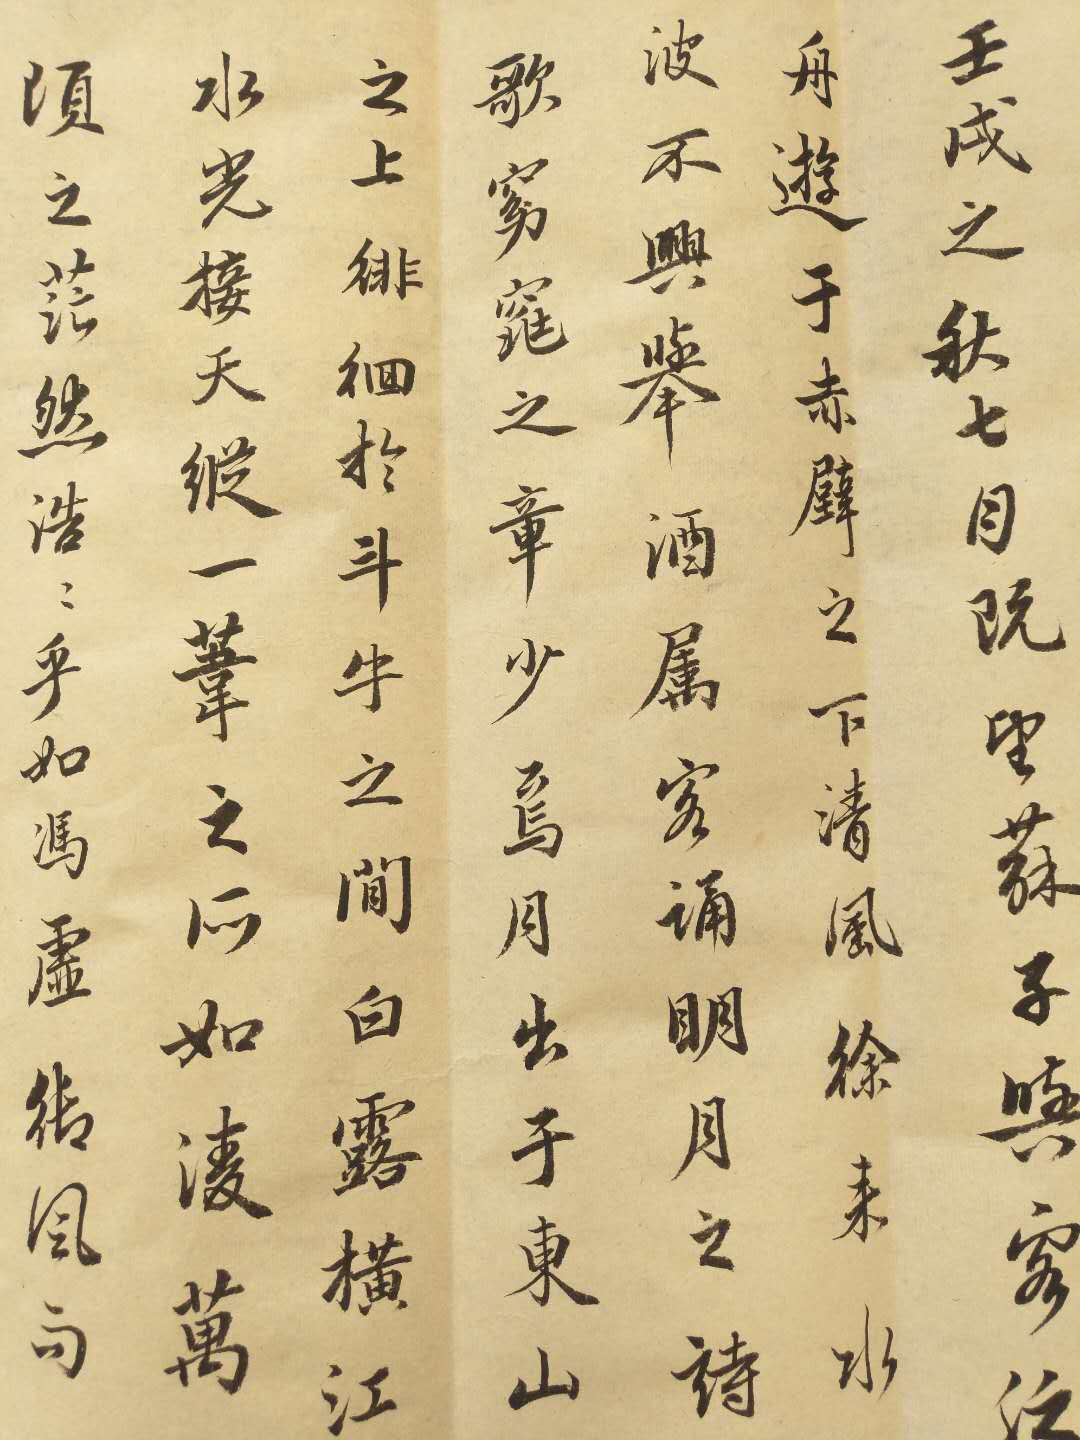 壬戌之秋七月既望蘇子與客泛
舟遊于赤壁之下清風徐来水
波不興舉酒属客誦明月之詩
歌窈窕之章少焉月出于東山
之上徘徊於斗牛之間白露橫江
水光接天縱一葦之所如淩萬
頃之茫然浩〻乎如馮虛御風而